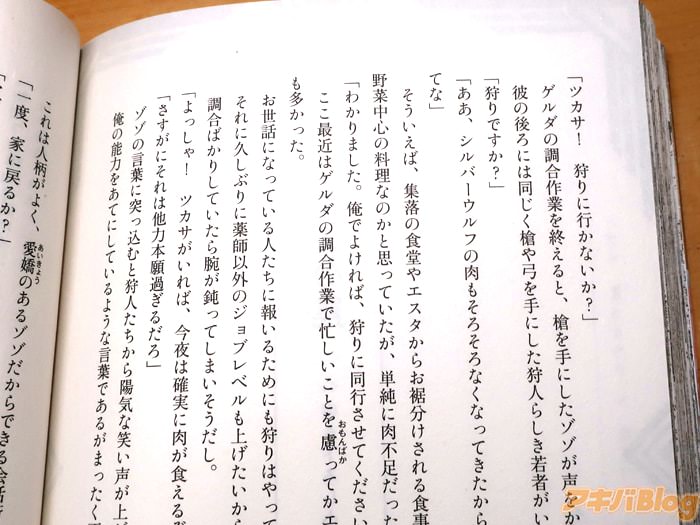 「ツカサ！　狩りに行かないか？」
ゲルダの調合作業を終えると、槍を手にしたゾゾが声をか
彼の後ろには同じく槍や弓を手にした狩人らしき若者がい
「狩りですか？」
「ああ、シルバーウルフの肉もそろそろなくなってきたから
てな」
そういえば、集落の食堂やエスタからお裾分けされる食事
野菜中心の料理なのかと思っていたが、単純に肉不足だった
「わかりました。俺でよければ、狩りに同行させてください
ここ最近はゲルダの調合作業で忙しいことを慮ってかエ
おもんぱか
も多かった。
お世話になっている人たちに報いるためにも狩りはやって
それに久しぶりに薬師以外のジョブレベルも上げたいから
調合ばかりしていたら腕が鈍ってしまいそうだし。
「よっしゃ！　ツカサがいれば、今夜は確実に肉が食えるぞ
「さすがにそれは他力本願過ぎるだろ」
ゾゾの言葉に突っ込むと狩人たちから陽気な笑い声が上が
俺の能力をあてにしているような言葉であるがまったく
これは人柄がよく、愛嬌のあるゾゾだからできる会話
あいきょう
「一度、家に戻るか？」
アキバBlog